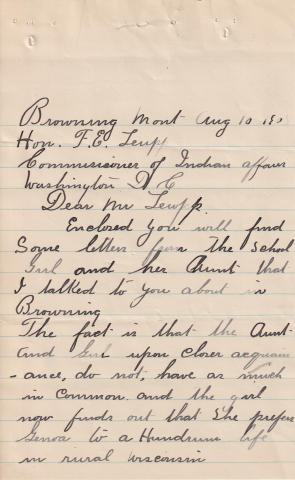 Browning Mont Aug 10 190
Hon. F.E. Leupp
Commissioner of Indian affairs
Washington D C
Dear Mr Leupp.
Enclosed you will find
Some letters from the School
Girl and her Aunt that
I talked to you about in
Browning
The fact is that the Aunt
and Girl upon closer acquain
-ance, do not, have as much
in common. and the girl
now finds out that She prefers
Genoa to a Humdrum life
in rural Wisconsin